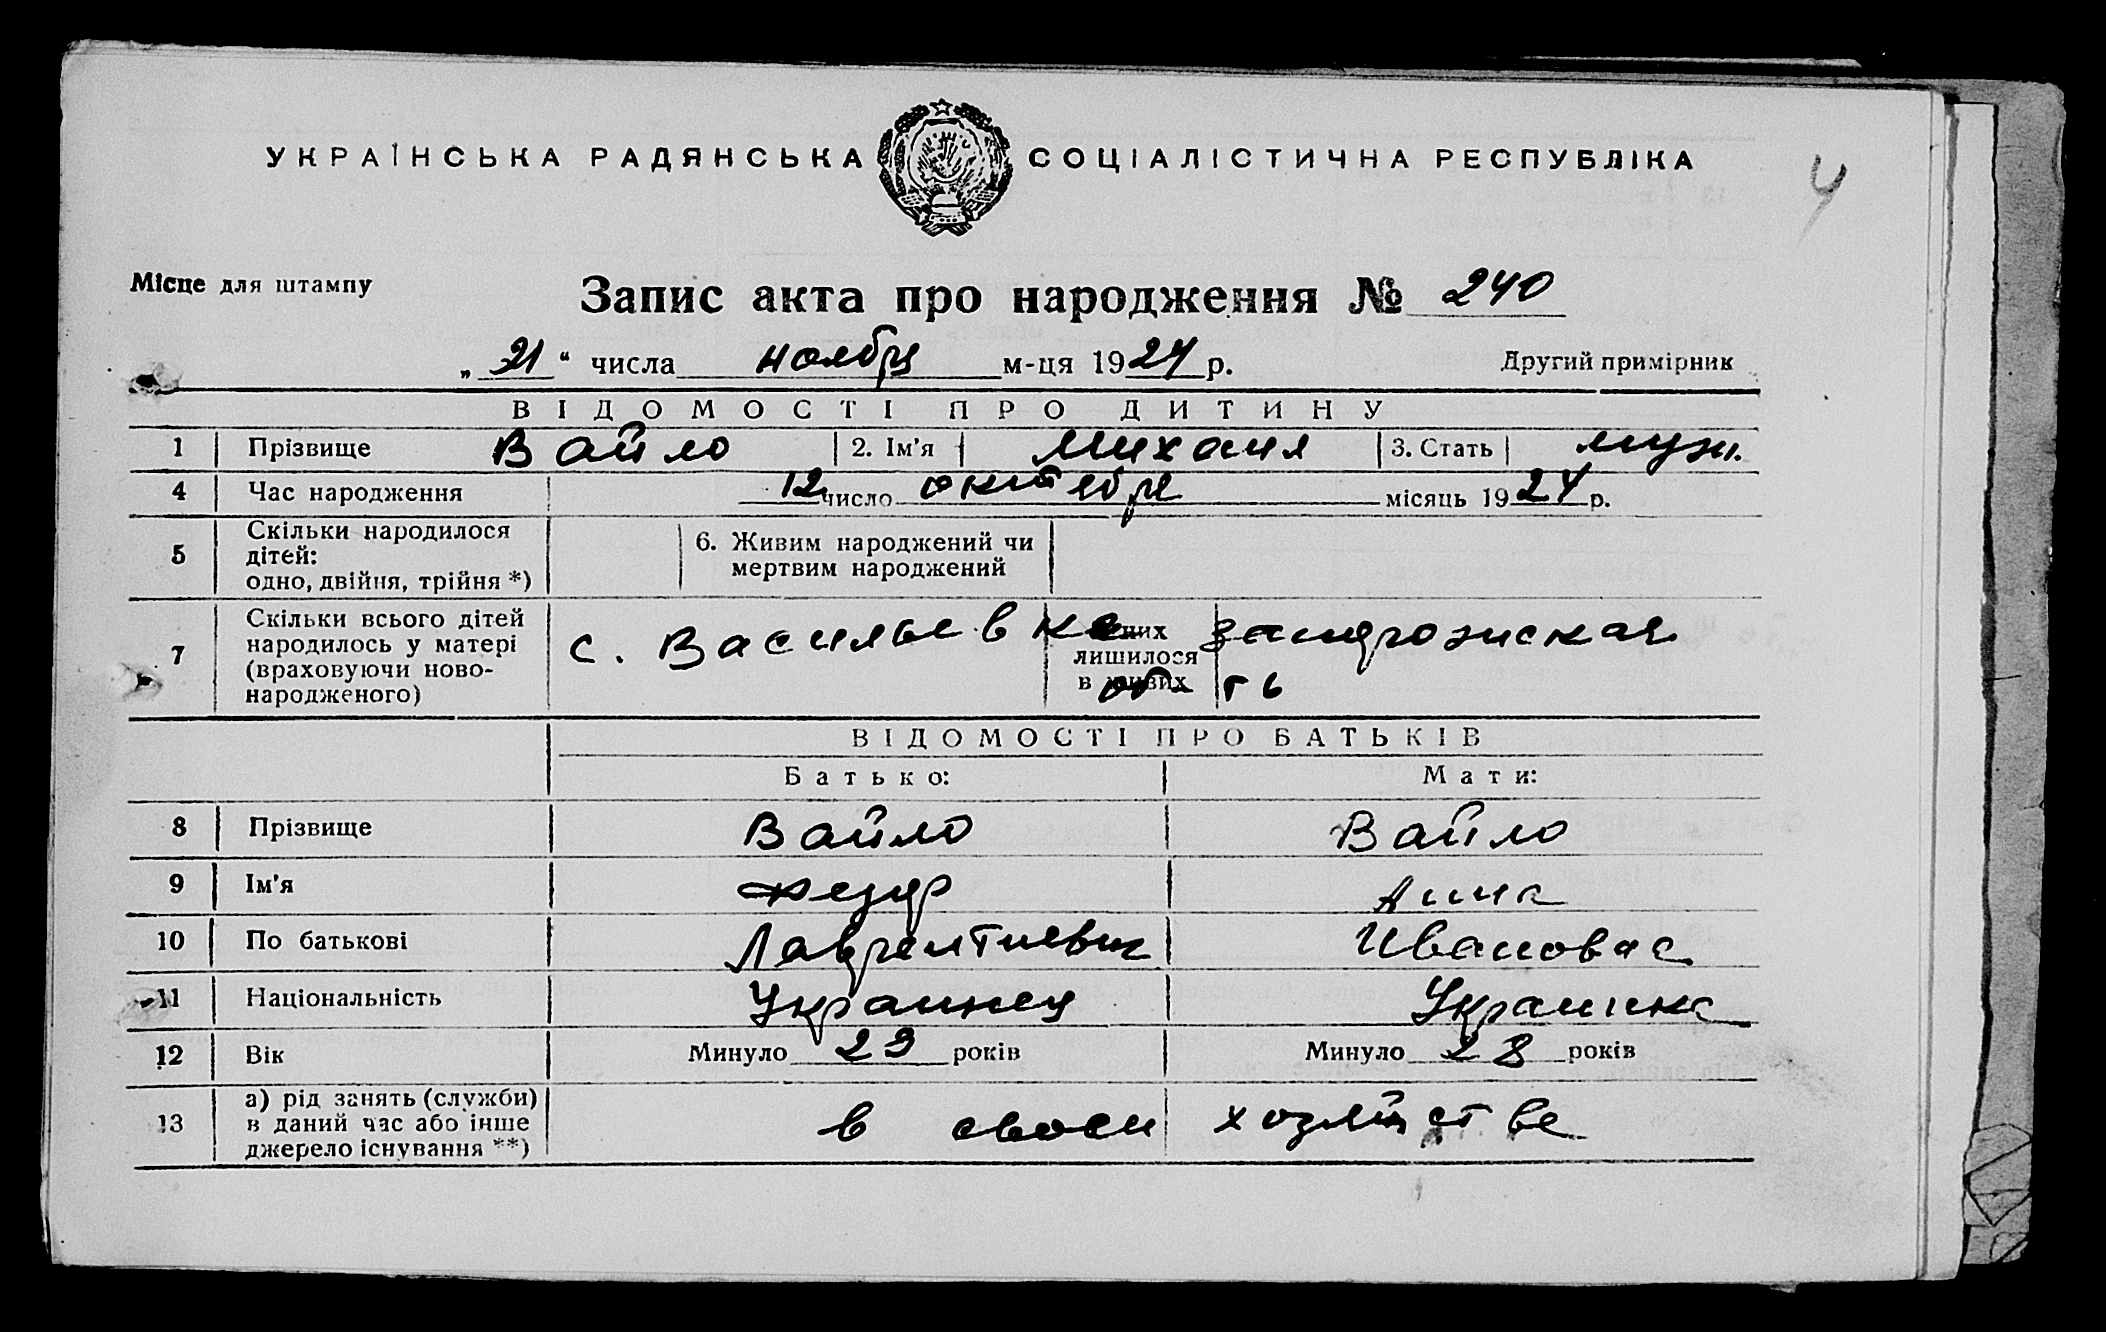 УКРАЇНСЬКА РАДЯНСЬКА СОЦІАЛІСТИЧНА РЕСПУБЛІКА
4
Місце для штампу
Запис акта про народження № 240
„21“ числа ноября м-ця 1924 р.
Другий примірник
ВІДОМОСТІ ПРО ДИТИНУ
1 Прізвище Вайло 2. Ім'я Михаил 3. Стать муж.
4 Час народження 12 число октября місяць 1924 р.
5 Скільки народилося дітей: одно, двійня, трійня *)
6. Живим народжений чи мертвим народжений
7 Скільки всього дітей народилось у матері (враховуючи ново-народженого)
с. Васильевка запорожская
лишилося в живих
ВІДОМОСТІ ПРО БАТЬКІВ
Батько: Мати:
8 Прізвище Вайло Вайло
9 Ім'я Федор Анна
10 По батькові Лаврентиевич Ивановна
11 Національність Украинец Украинка
12 Вік Минуло 29 років Минуло 28 років
13 а) рід занять (служби) в даний час або інше джерело існування **) в своем хозяйстве